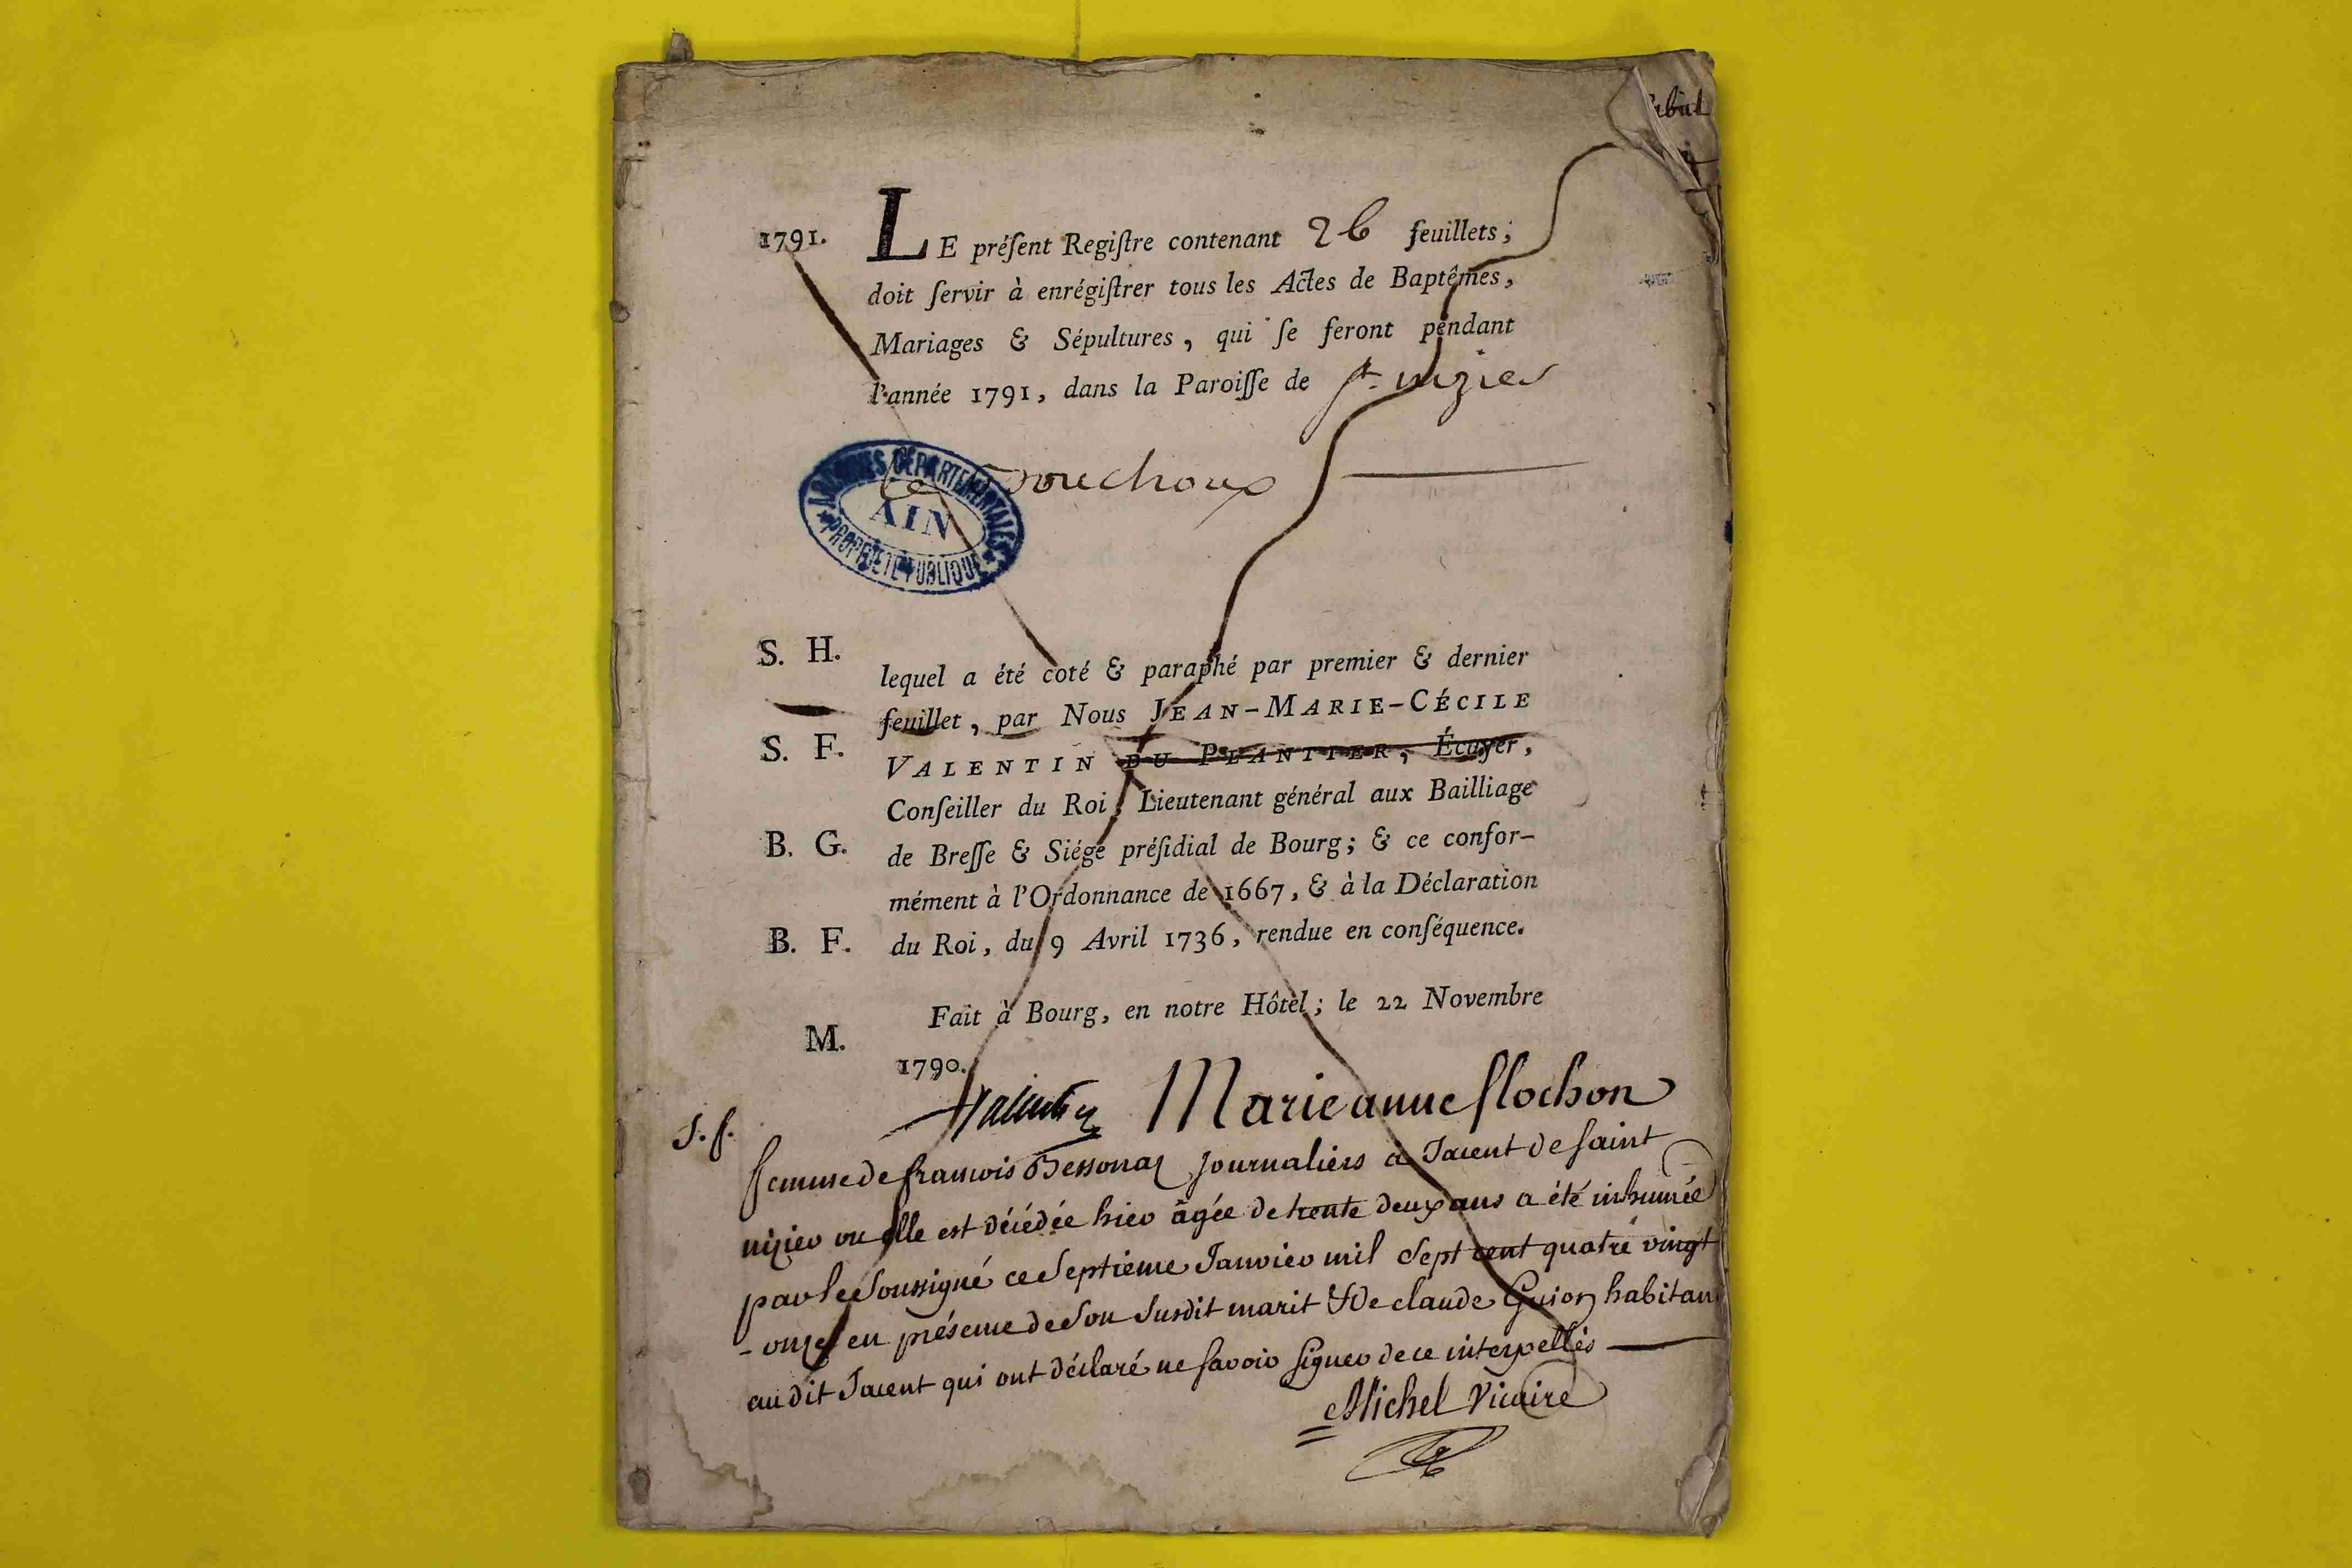 1791. LE préſent Regiſtre contenant 26 feuillets;
doit ſervir à enrégiſtrer tous les Actes de Baptêmes,
Mariages & Sépultures, qui ſe feront pendant
l'année 1791, dans la Paroiſſe de st. nizier
le Bouchoux
ARCHIVES DÉPARTEMENTALES
AIN
PROPRIÉTÉ PUBLIQUE
S. H.
lequel a été coté & paraphé par premier & dernier
feuillet, par Nous JEAN-MARIE-CÉCILE
S. F.
VALENTIN DU PLANTIER, Écuyer,
Conſeiller du Roi, Lieutenant général aux Bailliage
B. G.
de Breſſe & Siége préſidial de Bourg; & ce confor-
mément à l'Ordonnance de 1667, & à la Déclaration
B. F.
du Roi, du 9 Avril 1736, rendue en conſéquence.
Fait à Bourg, en notre Hôtel; le 22 Novembre
M.
1790.
Valentin Marie anne flochon
S. f.
femme de francois Bessonat journaliers à Jacent de saint
nizier ou elle est décédée hier âgée de trente deux ans a été inhumée
par le soussigné ce septieme Janvier mil sept cent quatre vingt
- onze en présence de son susdit marit & de claude Guion habitant
au dit Jacent qui ont déclaré ne savoir signer de ce interpellés
Michel Vicaire